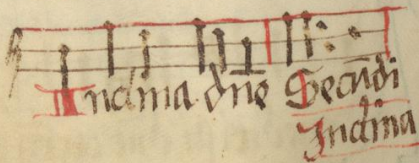 Inclina dn̄e Secūdi
Inclina